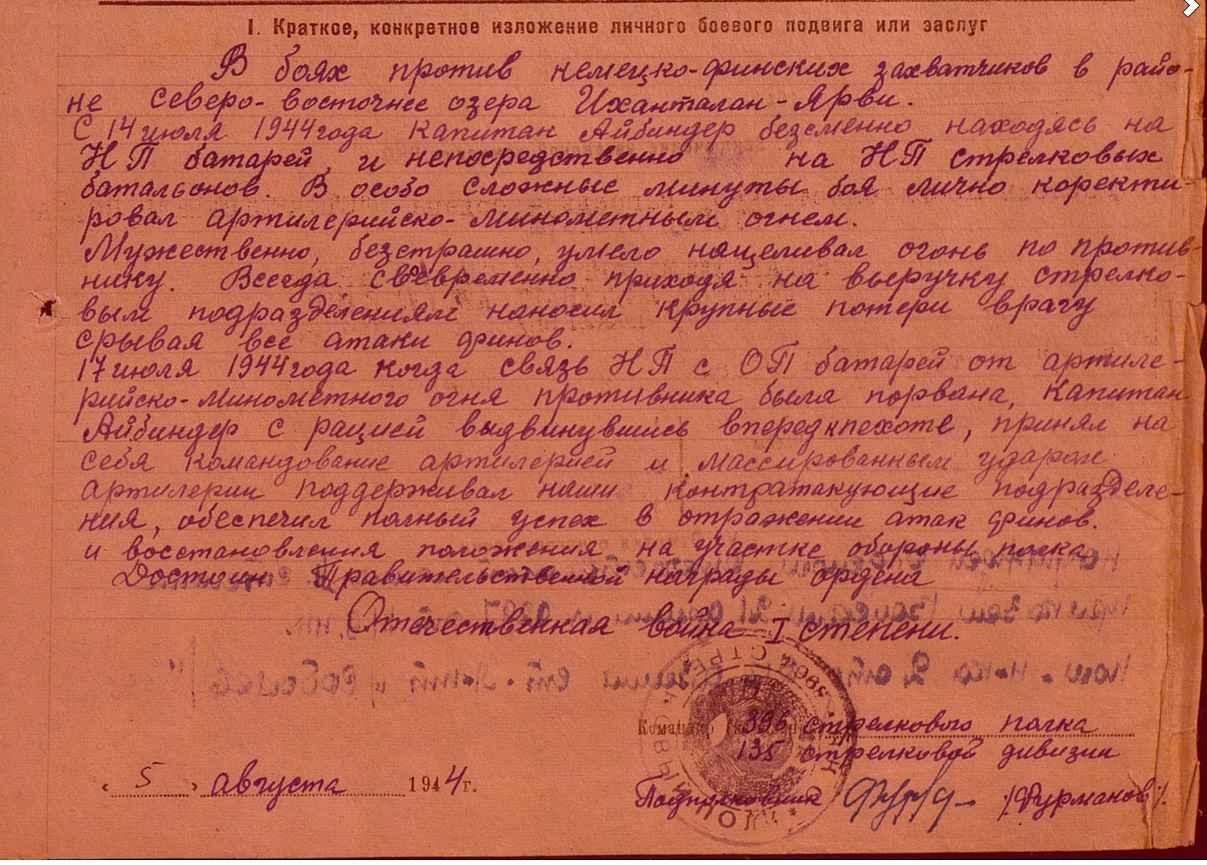 I. Краткое, конкретное изложение личного боевого подвига или заслуг
В боях против немецко-финских захватчиков в райо-
не северо-восточнее озера Иханталан-Ярви.
С 14 июля 1944 года капитан Айбиндер безсменно находясь на
НП батарей, и непосредственно на НП стрелковых
батальонов. В особо сложные минуты боя лично коректи-
ровал артилерийско-минометным огнем.
Мужественно, безстрашно, умело нацеливал огонь по против-
нику. Всегда своевременно приходя на выручку стрелко-
вым подразделениям наносил крупные потери врагу
срывая все атаки финов.
17 июля 1944 года когда связь НП с ОП батарей от артиле-
рийско-минометного огня противника была порвана, Капитан
Айбиндер с рацией выдвинувшись вперед к пехоте, принял на
себя командование артилерией и массированным ударом
артилерии поддерживал наши контратакующие подразделе-
ния, обеспечил полный успех в отражении атак финов.
и восстановления положения на участке обороны полка
Достоин Правительственной награды ордена
Отечественная война I степени.
396 стрелкового полка
135 стрелковой дивизии
« 5 » августа 1944 г.
Подполковник /Фурманов/.